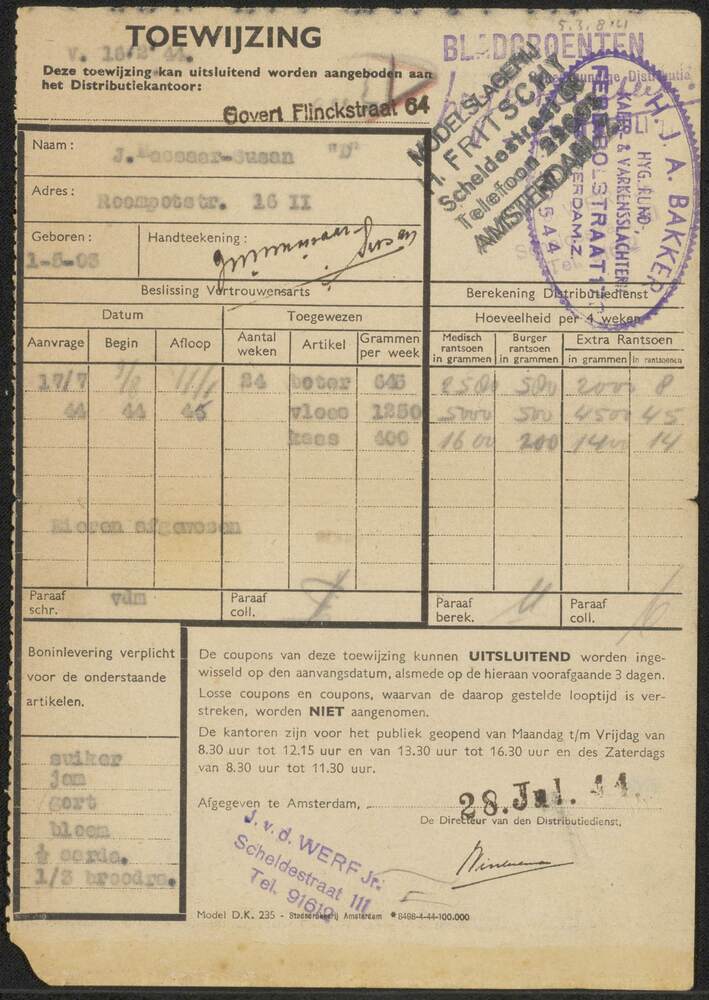 TOEWIJZING
V. 16/2 44.
Deze toewijzing kan uitsluitend worden aangeboden aan
het Distributiekantoor:
Govert Flinckstraat 64
5.3.8.41
BLADGROENTEN
MODELSLAGERIJ
H. FRITSCHY
Scheldestraat
Telefoon
AMSTERDAM Z.
H. J. A. BAKKER
HYG. RUND,
KALFS & VARKENSSLACHTERIJ
Naam :
J. -Susan "D"
Adres :
Roompotstr. 16 II
Geboren :
Handteekening :
1-5-03
Beslissing Vertrouwensarts
Berekening Distributiedienst
Datum
Toegewezen
Hoeveelheid per 4 weken
Aanvrage
Begin
Afloop
Aantal weken
Artikel
Grammen per week
Medisch rantsoen in grammen
Burger rantsoen in grammen
Extra Rantsoen
in grammen
in rantsoenen
17/7 24 boter 645 2580 500 2000 8
44 44 45 vlees 1250 5000 500 4500 45
kaas 400 1600 200 1400 14
Eieren afgewezen
Paraaf schr.
vdm
Paraaf coll.
Paraaf berek.
Paraaf coll.
Boninlevering verplicht
voor de onderstaande
artikelen.
suiker
jam
gort
bloem
½ aarda.
1/3 broodra.
De coupons van deze toewijzing kunnen UITSLUITEND worden inge-
wisseld op den aanvangsdatum, alsmede op de hieraan voorafgaande 3 dagen.
Losse coupons en coupons, waarvan de daarop gestelde looptijd is ver-
streken, worden NIET aangenomen.
De kantoren zijn voor het publiek geopend van Maandag t/m Vrijdag van
8.30 uur tot 12.15 uur en van 13.30 uur tot 16.30 uur en des Zaterdags
van 8.30 uur tot 11.30 uur.
Afgegeven te Amsterdam,
28. Jul. 44.
De Directeur van den Distributiedienst,
J. v. d. WERF Jr.
Scheldestraat 111
Tel. 91612
Model D.K. 235 - Stadsdrukkerij Amsterdam * 8498-4-44-100.000